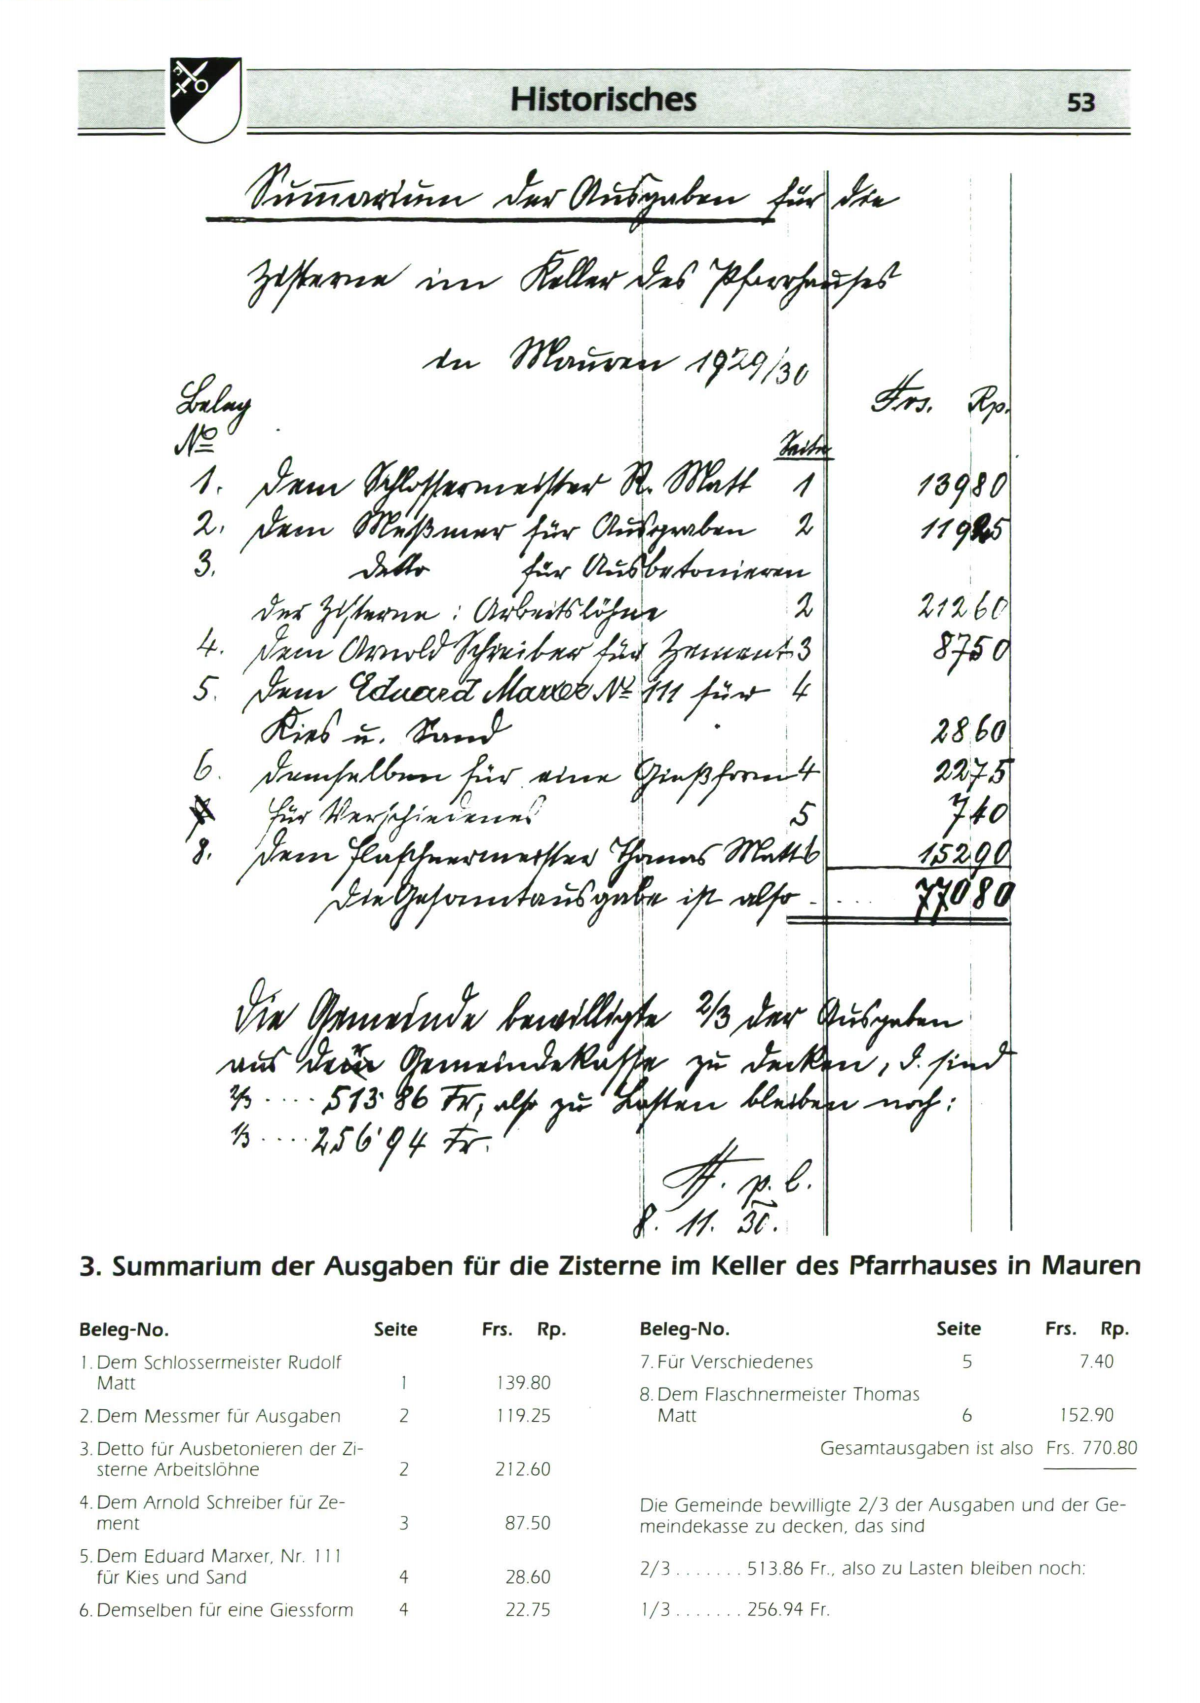 Historisches
53
Summarium der Ausgaben für die
Zisterne im Keller des Pfarrhauses
in Mauren 1929/30
Beleg
No
Frs. Rp.
Seite
1. Dem Schlossermeister R. Matt 1 139 80
2. Dem Meßmer für Ausgraben 2 119 25
3. detto für Ausbetonieren
der Zisterne : Arbeitslöhne 2 212 60
4. Dem Arnold Schreiber für Zement 3 87 50
5. Dem Eduard Marxer No 111 für 4
Kies u. Sand 28 60
6. Demselben für eine Gießform 4 22 75
7. für Verschiedenes 5 7 40
8. Dem Flaschnermeister Thomas Matt 6 152 90
Die Gesamtausgabe ist also . . . . . 770 80
Die Gemeinde bewilligte 2/3 der Ausgaben
aus der Gemeindekasse zu decken, d. sind
2/3 . . . . 513'86 Fr, also zu Lasten bleiben noch:
1/3 . . . . 256'94 Fr.
p. l.
8. 11. 30.
3. Summarium der Ausgaben für die Zisterne im Keller des Pfarrhauses in Mauren
Beleg-No. Seite Frs. Rp.
1. Dem Schlossermeister Rudolf
Matt 1 139.80
2. Dem Messmer für Ausgaben 2 119.25
3. Detto für Ausbetonieren der Zi-
sterne Arbeitslöhne 2 212.60
4. Dem Arnold Schreiber für Ze-
ment 3 87.50
5. Dem Eduard Marxer, Nr. 111
für Kies und Sand 4 28.60
6. Demselben für eine Giessform 4 22.75
Beleg-No. Seite Frs. Rp.
7. Für Verschiedenes 5 7.40
8. Dem Flaschnermeister Thomas
Matt 6 152.90
Gesamtausgaben ist also Frs. 770.80
Die Gemeinde bewilligte 2/3 der Ausgaben und der Ge-
meindekasse zu decken, das sind
2/3 . . . . . . . 513.86 Fr., also zu Lasten bleiben noch:
1/3 . . . . . . . 256.94 Fr.